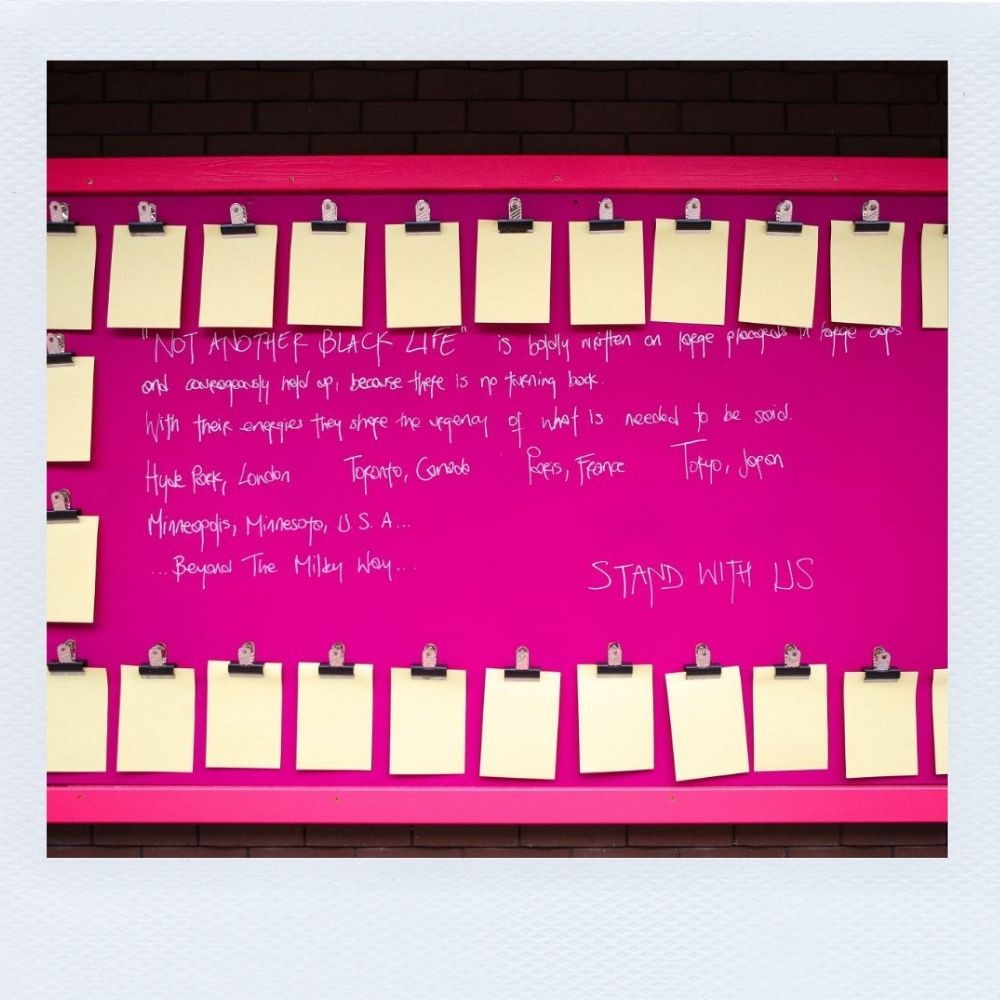 "NOT ANOTHER BLACK LIFE" is boldly written on large placards in large caps
and courageously held up, because there is no turning back.
With their energies they share the urgency of what is needed to be said.
Hyde Park, London Toronto, Canada Paris, France Tokyo, Japan
Minneapolis, Minnesota, U.S.A...
...Beyond The Milky Way...
STAND WITH US